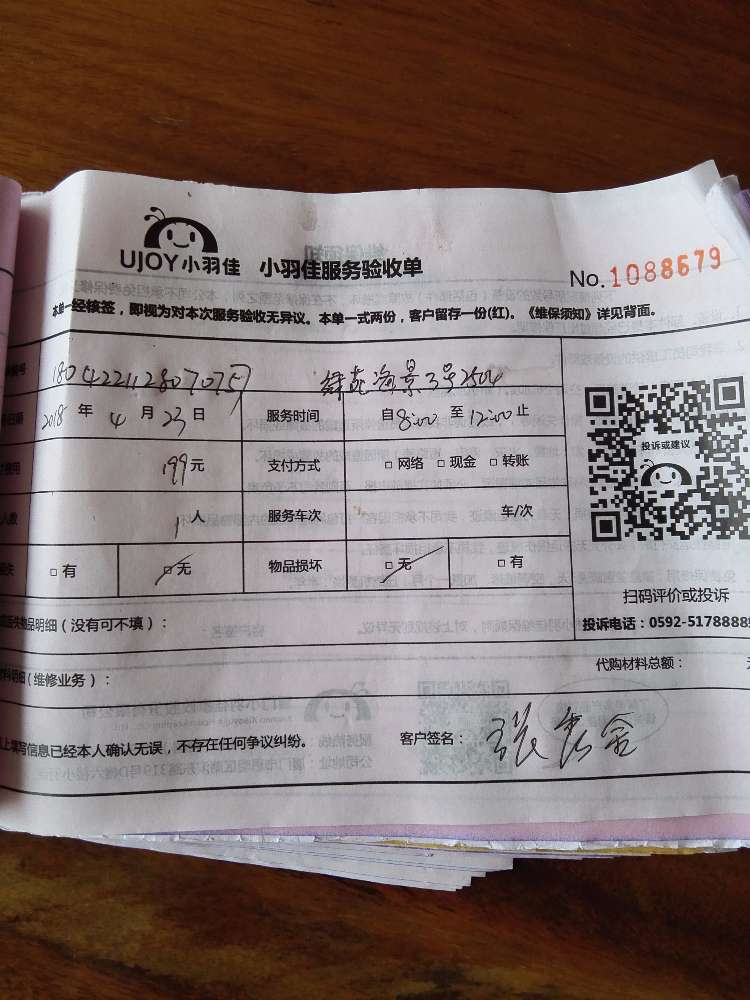 UJOY小羽佳 小羽佳服务验收单
No. 1088679
本单一经核签，即视为对本次服务验收无异议。本单一式两份，客户留存一份(红)。《维保须知》详见背面。
编号 海景3号2504
2018 年 4 月 23 日 服务时间 自 8:00 至 12:00 止
费用 199 元 支付方式 □ 网络 □ 现金 □ 转账
人数 1 人 服务车次 车/次
□ 有 □ 无 物品损坏 □ 无 □ 有
投诉或建议
扫码评价或投诉
投诉电话：0592-5178888
物品明细（没有可不填）：
明细（维修业务）： 代购材料总额：
上填写信息已经本人确认无误，不存在任何争议纠纷。 客户签名： 张